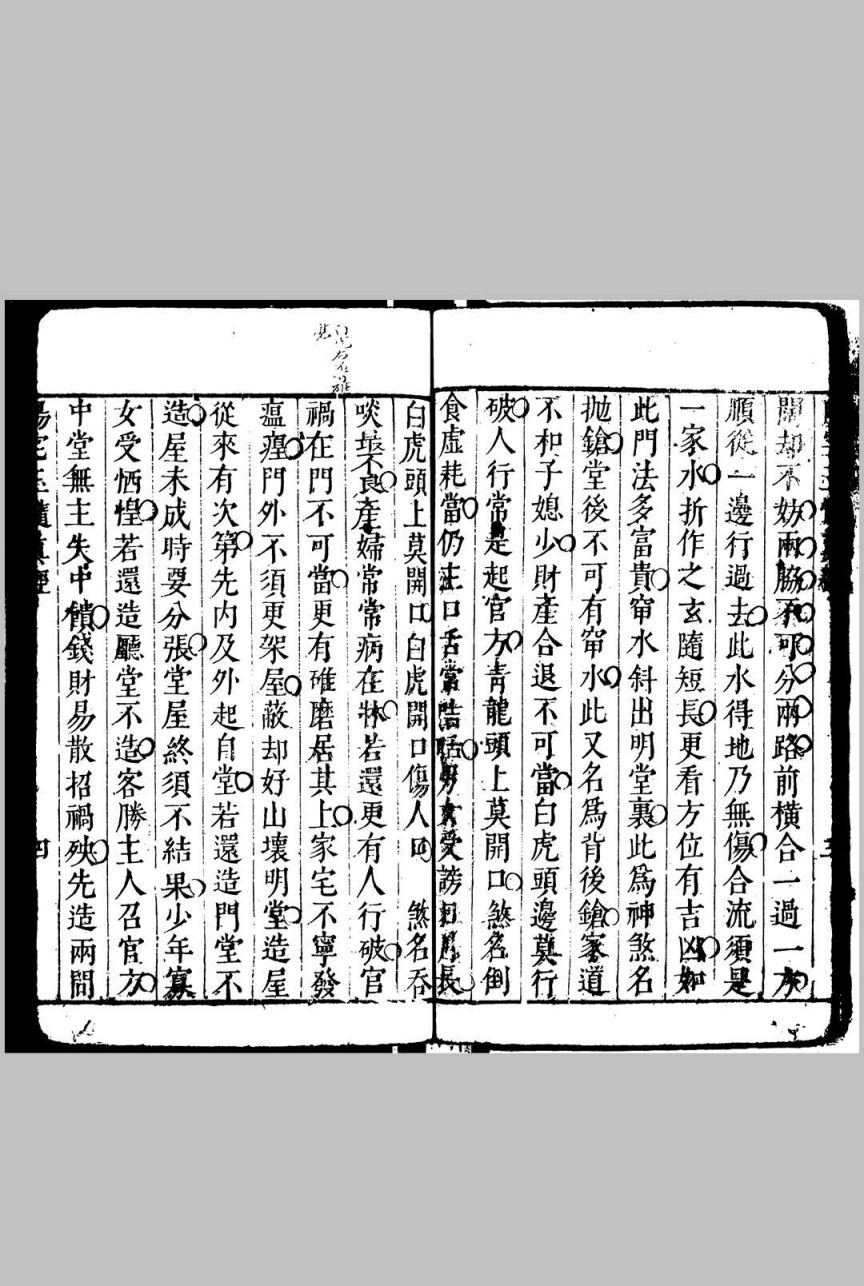 開却不妨兩脇不可分兩路前橫合一過一方
順從一邊行過去此水得地乃無傷合流須是
一家水折作之玄隨短長更看方位有吉凶如
此門法多富貴帘水斜出明堂裏此爲神煞名
拋鎗堂後不可有帘水此又名爲背後鎗家道
不和子媳少財產合退不可當白虎頭邊莫行
破人行常是起官方青龍頭上莫開口煞名倒
食虛耗當仍主口舌常咭聒男女受謗長
白虎頭上莫開口白虎開口傷人口煞名吞
啖最不良產婦常常病在牀若還更有人行破官
禍在門不可當更有碓磨居其上家宅不寧發
瘟瘟門外不須更架屋蔽却好山壞明堂造屋
從來有次第先內及外起自堂若還造門堂不
造屋未成時要分張堂屋終須不結果少年寡
女受恓惶若還造廳堂不造客勝主人召官方
中堂無主失中饋錢財易散招禍殃先造兩間
陽宅玉髓真經
四